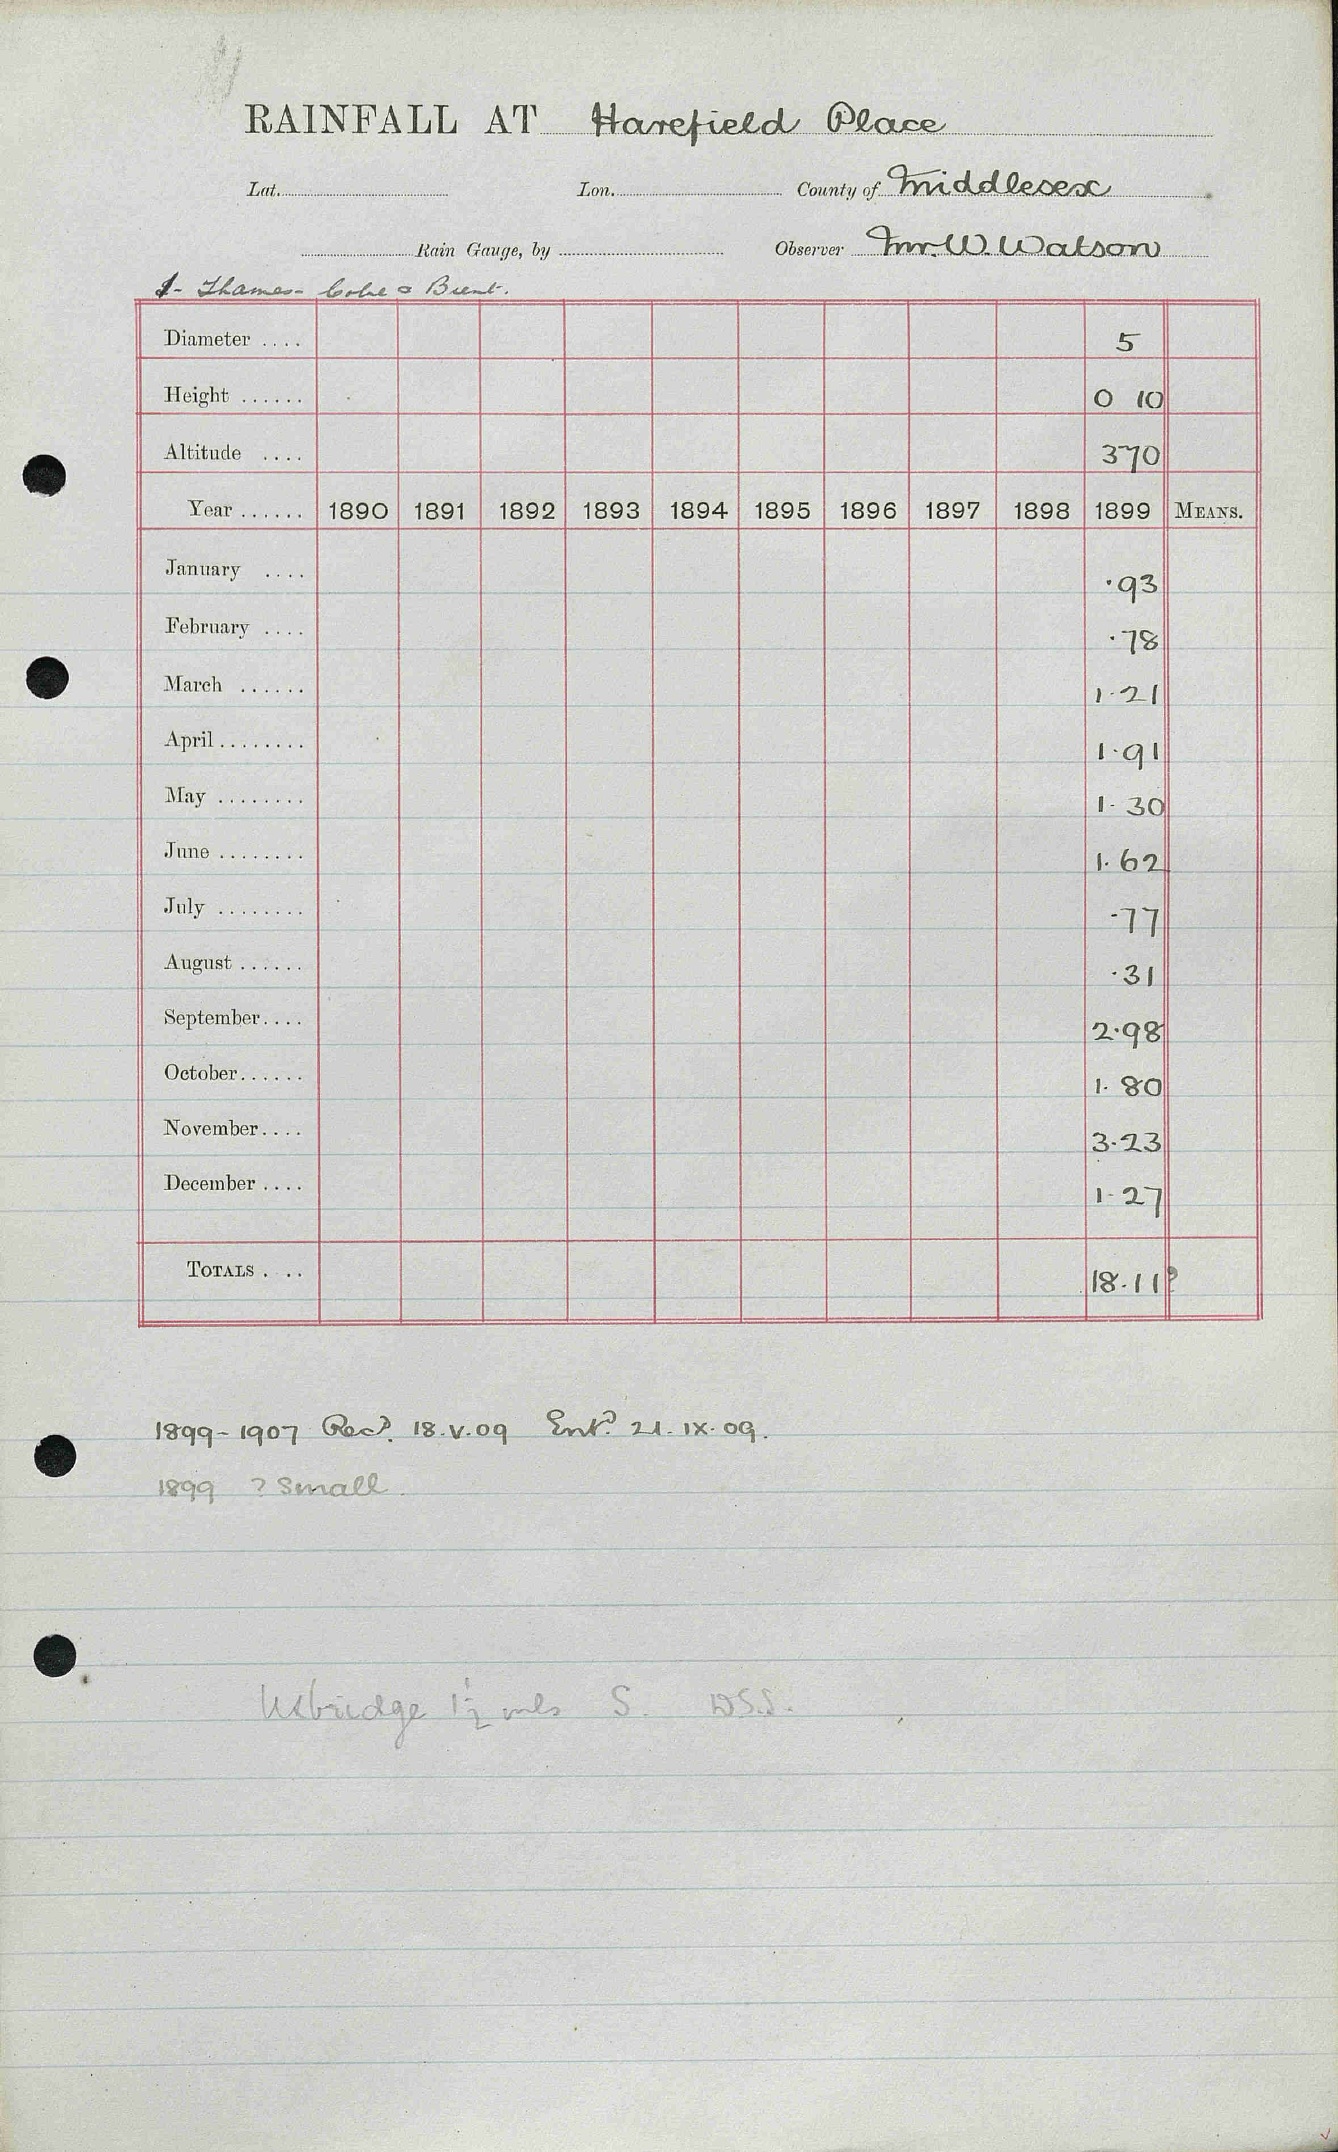 RAINFALL AT Harefield Place
Lat. Lon. County of Middlesex
Rain Gauge, by Observer Mr. W. Watson
1 - Thames - Colne & Brent.
Diameter .... 5
Height ...... 0 10
Altitude .... 370
Year ...... 1890 1891 1892 1893 1894 1895 1896 1897 1898 1899 MEANS.
January .... ·93
February .... ·78
March ...... 1·21
April ........ 1·91
May ........ 1·30
June ........ 1·62
July ........ ·77
August ...... ·31
September.... 2·98
October...... 1·80
November.... 3·23
December .... 1·27
TOTALS .... 18·11?
1899-1907 Recd. 18.V.09 Entd. 21.IX.09.
1899 ? Small
Uxbridge 1½ mls S. DSS.